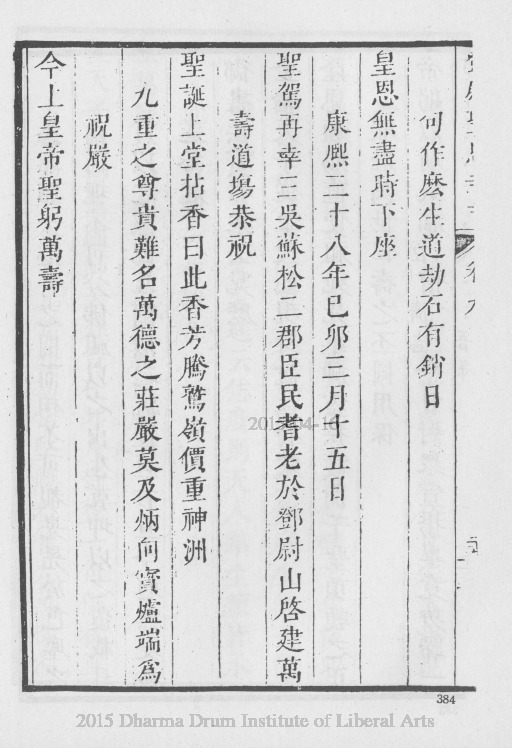 句作麽生道劫石有銷日
皇恩無盡時下座
康熙三十八年己卯三月十五日
聖駕再幸三吳蘇松二郡臣民耆老於鄧尉山啓建萬
壽道塲恭祝
聖誕上堂拈香曰此香芳騰鷲嶺價重神洲
九重之尊貴難名萬德之莊嚴莫及炳向寳爐端爲
祝嚴
今上皇帝聖躬萬壽
2015-04-16
384
2015 Dharma Drum Institute of Liberal Arts